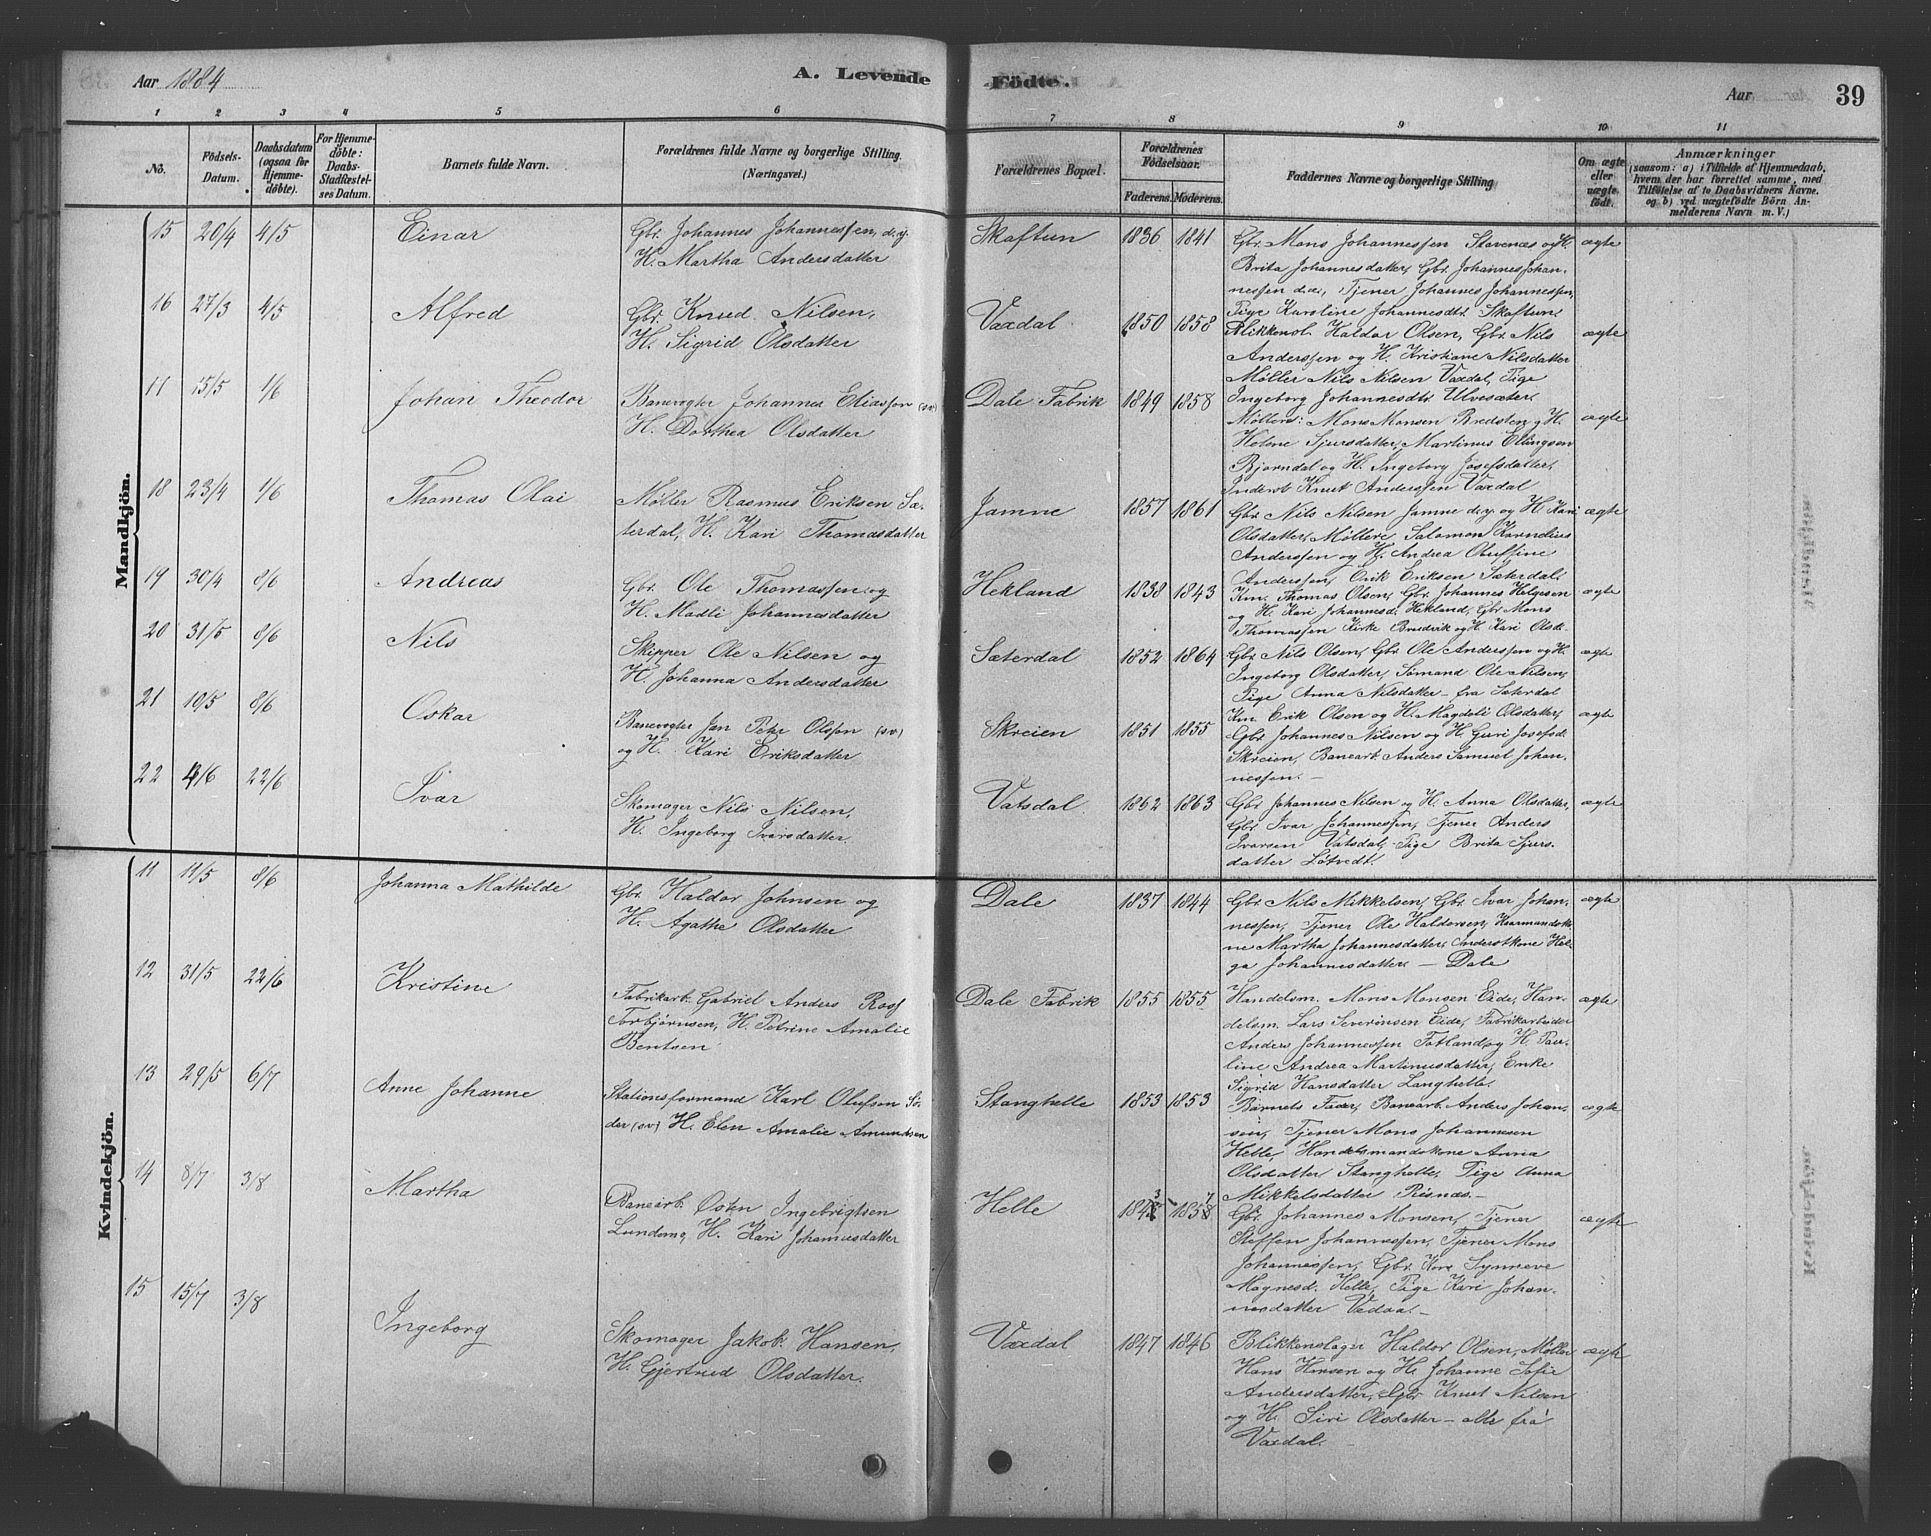 Aar 1884
A. Levende Födte.
Aar
39
1 2 3 4 5 6 7 8 9 10 11
No.
Födsels-Datum.
Daabsdatum (ogsaa for Hjemmedöbte).
For Hjemmedöbte: Daabs-Stadfæstelses Datum.
Barnets fulde Navn.
Forældrenes fulde Navne og borgerlige Stilling. (Næringsvei.)
Forældrenes Bopæl.
Forældrenes Födselsaar.
Faderens. Moderens.
Faddernes Navne og borgerlige Stilling
Om ægte eller uægte födt.
Anmærkninger
(saasom: a) i Tilfælde af Hjemmedaab, hvem der har forrettet samme, med Tilföielse af to Daabsvidners Navne. og b) ved uægtefödte Börn Anmelderens Navn m. V.)
Mandkjön.
15 20/4 4/5 Einar
Gbr. Johannes Johannessen, d.y.
H. Martha Andersdatter
Skaftun 1836 1841
Gbr. Mons Johannessen Stavenæs og H.
Brita Johannesdatter, Gbr. Johannes Johan-
nessen d.e., Tjener Johannes Johannessen,
Pige Karoline Johannesdtr. Skaftun.
ægte
16 27/3 4/5 Alfred
Gbr. Knud Nilsen,
H. Sigrid Olsdatter
Vaxdal 1850 1858
Blikkensl. Haldor Olsen, Gbr. Nils
Anderssen og H. Kristiane Nilsdatter
Møller Nils Nilsen Vaxdal, Pige
Ingeborg Johannesdtr. Ulvesæter.
ægte
11 15/5 1/6 Johan Theodor
Banevogter Johannes Eliassen (sv)
H. Dorthea Olsdatter
Dale Fabrik 1849 1858
Møllers: Mons Monsen Bredsten og H.
Helene Sjursdatter, Martinus Ellingsen
Bjørndal og H. Ingeborg Josefsdatter,
Inderst Knut Anderssen Vaxdal
ægte
18 23/4 1/6 Thomas Olai
Møller Rasmus Eriksen Sæ-
terdal, H. Kari Thomasdatter
Jamne 1857 1861
Gbr. Nils Nilsen Jamne d.y. og H. Kari
Olsdatter, Møllere Salomon Kornelius
Anderssen og H. Andrea Oluffine
Anderssen, Erik Eriksen Sæterdal.
ægte
19 30/4 8/6 Andreas
Gbr. Ole Thomassen og
H. Madli Johannesdatter
Hekland 1838 1843
Km. Thomas Olsen, Gbr. Johannes Helgesen
og H. Kari Johannesd. Hekland, Gbr. Mons
Thomassen Kirke Bruvik og H. Kari Olsd.
ægte
20 31/5 8/6 Nils
Skipper Ole Nilsen og
H. Johanna Andersdatter
Sæterdal 1852 1864
Gbr. Nils Olsen, Gbr. Ole Anderssen og H.
Ingeborg Olsdatter, Sømand Ole Nilsen,
Pige Anna Nilsdatter - fra Sæterdal
ægte
21 10/5 8/6 Oskar
Banevogter Jan Peter Olssen (sv)
og H. Kari Eriksdatter
Skreien 1851 1855
Km. Erik Olsen og H. Magdeli Olsdatter,
Gbr. Johannes Nilsen og H. Guri Josefsd.
Skreien, Banearb. Anders Samuel Johan-
nessen. -
ægte
22 4/6 22/6 Ivar
Skomager Nils Nilsen,
H. Ingeborg Ivarsdatter.
Vatsdal 1862 1863
Gbr. Johannes Nilsen og H. Anna Olsdatter,
Gbr. Ivar Johannessen, Tjener Anders
Ivarsen Vatsdal, Pige Brita Sjurs-
datter Løtvedt.
ægte
Kvindekjön.
11 11/5 8/6 Johanna Mathilde
Gbr. Haldor Johnsen og
H. Agathe Olsdatter
Dale 1837 1844
Gbr. Nils Mikkelsen, Gbr. Ivar Johan-
nessen, Tjener Ole Haldorsen, Kaarmandsko-
ne Martha Johannesdatter, Inderstkone Hel-
ga Johannesdatter. - Dale
ægte
12 31/5 22/6 Kristine
Fabrikarb. Gabriel Anders Ross
Torbjørnsen, H. Petrine Amalie
Bentsen
Dale Fabrik 1855 1855
Handelsm. Mons Monsen Eide, Han-
delsm. Lars Severinsen Eide, Fabrikarbeider
Anders Johannessen Fotland og H. Pau-
line Andrea Martinusdatter, Enke
Sigrid Hansdatter Langhelle.
ægte
13 29/5 6/7 Anne Johanne
Stationsformand Karl Olufsen Sö-
der (sv) H. Elen Amalie Amundsen
Stanghelle 1853 1853
Barnets Fader, Banearb. Anders Johan-
sen, Tjener Mons Johannesen
Helle, Handelsmandskone Anna
Olsdatter Stanghelle, Pige Anna
Mikkelsdatter Risnæs. -
ægte
14 8/7 3/8 Martha
Banearb. Østen Ingebrigtsen
Lundemo, H. Kari Johannesdatter
Helle 1843 1857
Gbr. Johannes Monsen, Tjener
Steffen Johannessen, Tjener Mons
Johannessen, Gbr. Kone Synneve
Magnesd. Helle, Pige Kari Johan-
nesdatter Vedaa. -
ægte
15 15/7 3/8 Ingeborg
Skomager Jakob Hansen,
H. Gjertrud Olsdatter.
Vaxdal 1847 1846
Blikkenslager Haldor Olsen, Møller
Hans Hansen og H. Johanne Sofie
Andersdatter, Gbr. Knut Nilsen
og H. Siri Olsdatter - alle fra
Vaxdal.
ægte